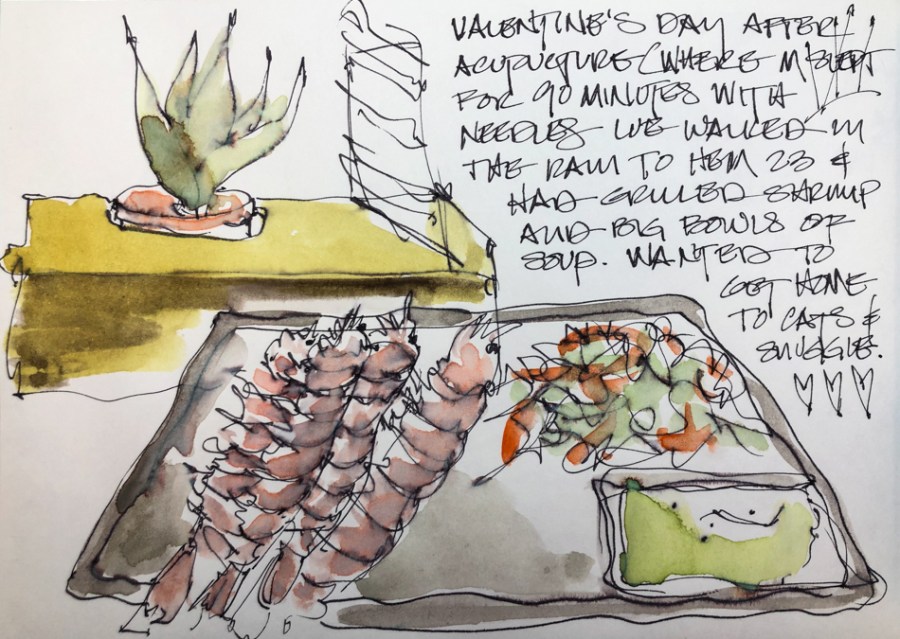 VALENTINE'S DAY AFTER
ACUPUCTURE (WHERE M SLEPT
FOR 90 MINUTES WITH
NEEDLES WE WALKED IN
THE RAIN TO HEM 23 &
HAD GRILLED SHRIMP
AND BIG BOWLS OF
SOUP. WANTED TO
GET HOME
TO CATS &
SNUGGLE.